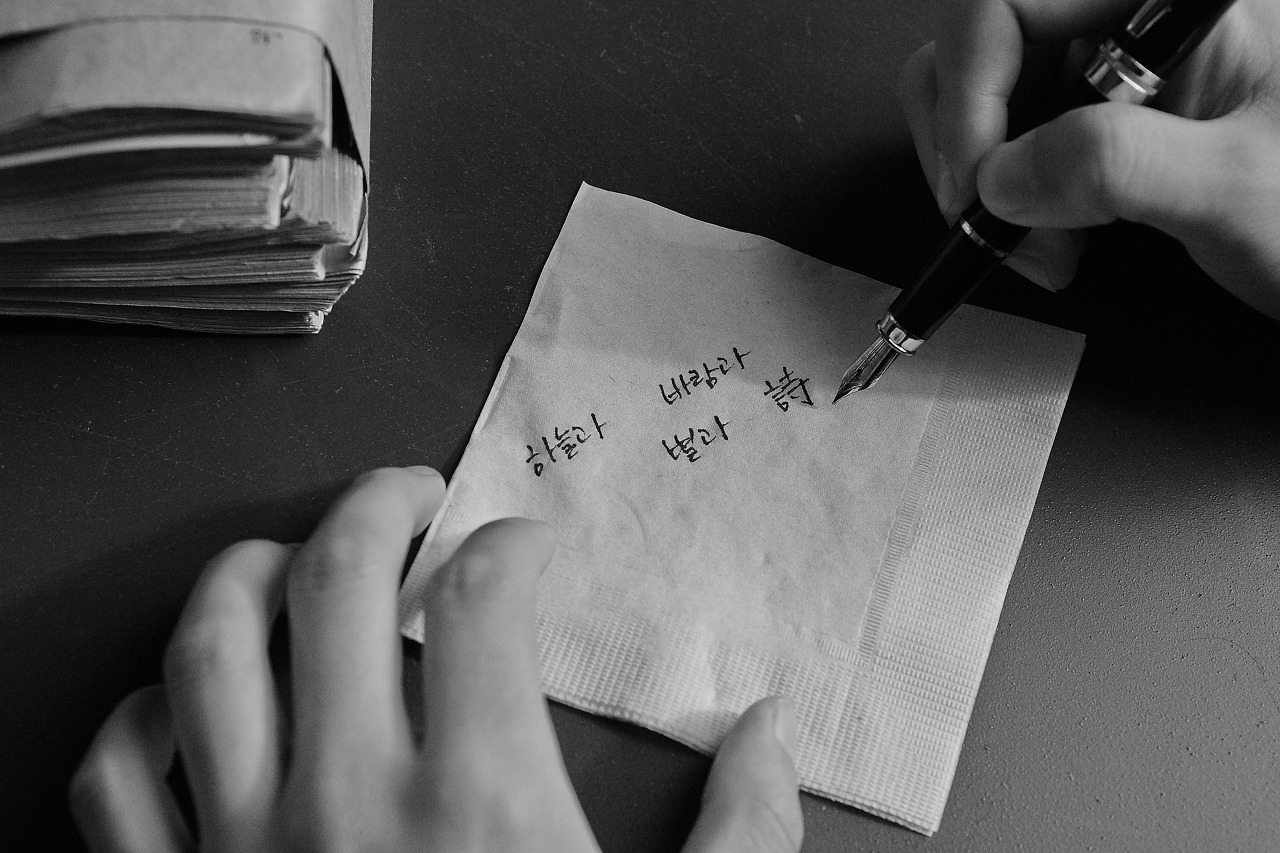 하늘과 바람과
별과 詩